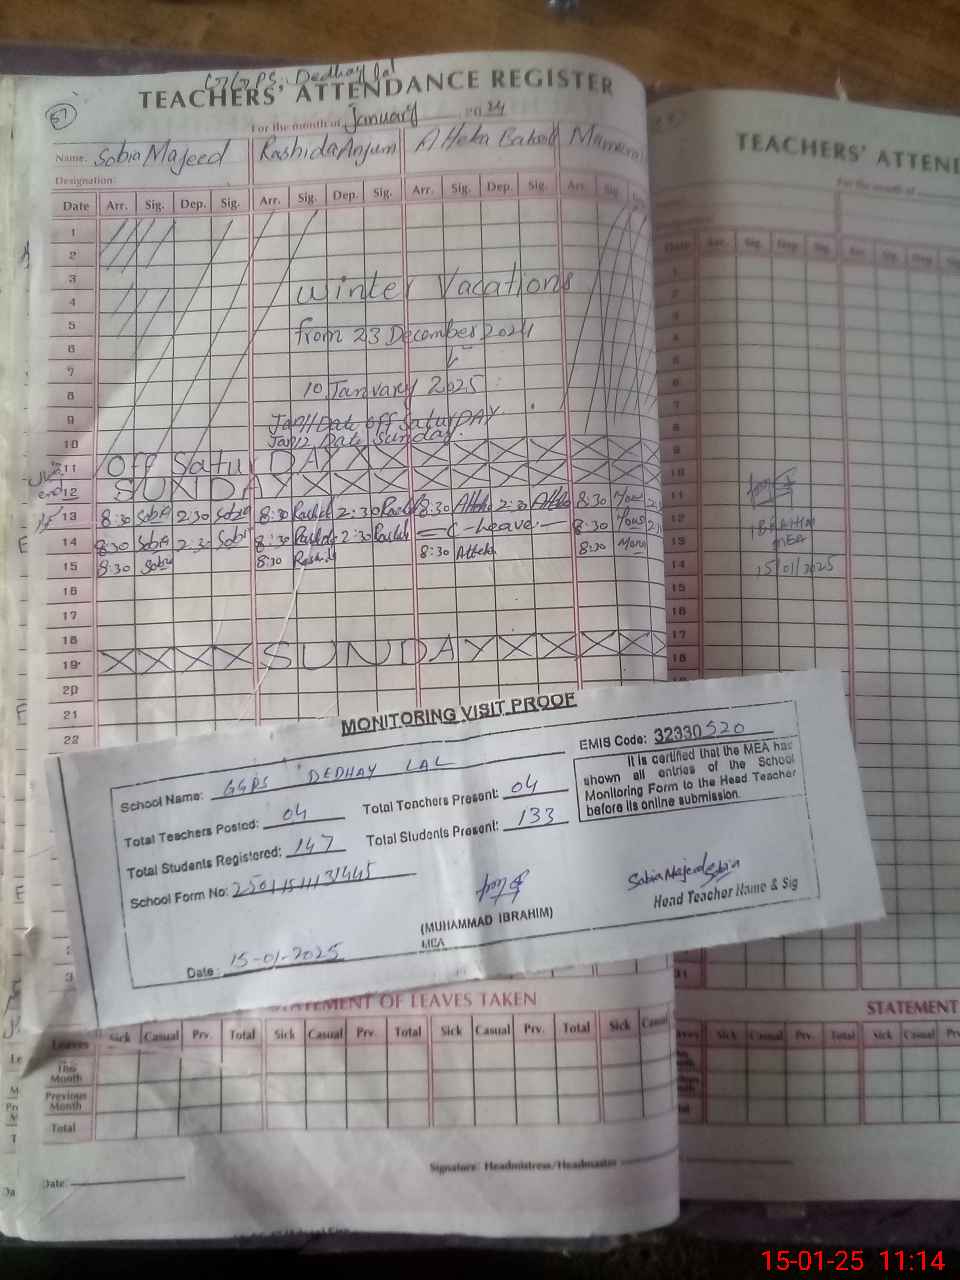 GGPS, Dedhay Lal
TEACHERS' ATTENDANCE REGISTER
57
For the month of January 2024
Name: Sobia Majeed Rashida Anjum
Designation:
Date Arr. Sig. Dep. Sig. Arr. Sig. Dep. Sig. Arr. Sig. Dep. Sig. Arr. Sig. Sig.
1
2
3 Winter Vacations
4
5 from 23 December 2024
6
7
8 10 January 2025
9 Jan 11 Date off Saturday
10 Jan 12 Date Sunday.
11 Off Satur DAY X X X X X X X
12 SUNDAY X X X X X X X X X
13 8:30 Sobia 2:30 Sobia 8:30 Rashid 2:30 Rashid 8:30 Atteka 2:30 Atteka 8:30
14 8:30 Sobia 2:30 Sobia 8:30 Rashid 2:30 Rashid = C-Leave - 8:30
15 8:30 Sobia 8:30 Rashid 8:30 Atteka 8:30
16
17
18
19 X X X X SUNDAY X X X X X
20
21
22
MONITORING VISIT PROOF
School Name: GGPS DEDHAY LAL
EMIS Code: 32330520
Total Teachers Posted: 04 Total Teachers Present: 04
Total Students Registered: 147 Total Students Present: 133
School Form No: 2501151131445
It is certified that the MEA has
shown all entries of the School
Monitoring Form to the Head Teacher
before its online submission.
(MUHAMMAD IBRAHIM)
MEA
Sobia Majeed Sobia
Head Teacher Name & Sig
Date: 15-01-2025
STATEMENT OF LEAVES TAKEN
Leaves Sick Casual Prv. Total Sick Casual Prv. Total Sick Casual Prv. Total Sick Casual
This Month
Previous Month
Total
Signature: Headmistress/Headmaster
Date:
TEACHERS' ATTEND
For the month of
Date Arr. Sig. Dep. Sig. Arr. Sig. Dep. Sig.
1
2
3
4
5
6
7
8
9
10
11
12 IBRAHIM
13 MEA
14 15/01/2025
15
16
17
18
31
STATEMENT
Sick Casual Prv. Total Sick Casual Prv.
15-01-25 11:14